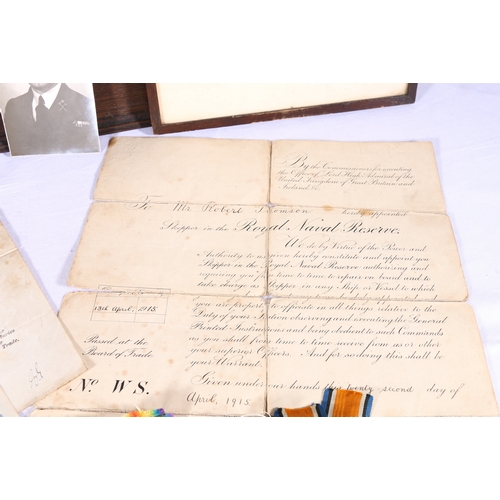 By the Commissioners for executing
the Office of Lord High Admiral of the
United Kingdom of Great Britain and
Ireland &c.
To Mr Robert Thomson hereby appointed
Skipper in the Royal Naval Reserve.
We do by Virtue of the Power and
Authority to us given hereby constitute and appoint you
Skipper in the Royal Naval Reserve authorising and
requiring you from time to time to repair on board and to
take charge as Skipper in any Ship or Vessel to which
you are
to officiate in all things relative to the
Duty of your Station observing and executing the General
Printed Instructions and being obedient to such Commands
as you shall from time to time receive from us or other
your superior Officers. And for so doing this shall be
your Warrant.
Given under our hands this twenty second day of
April, 1915.
April, 1915
Passed at the
Board of Trade.
No W S.
Trade.